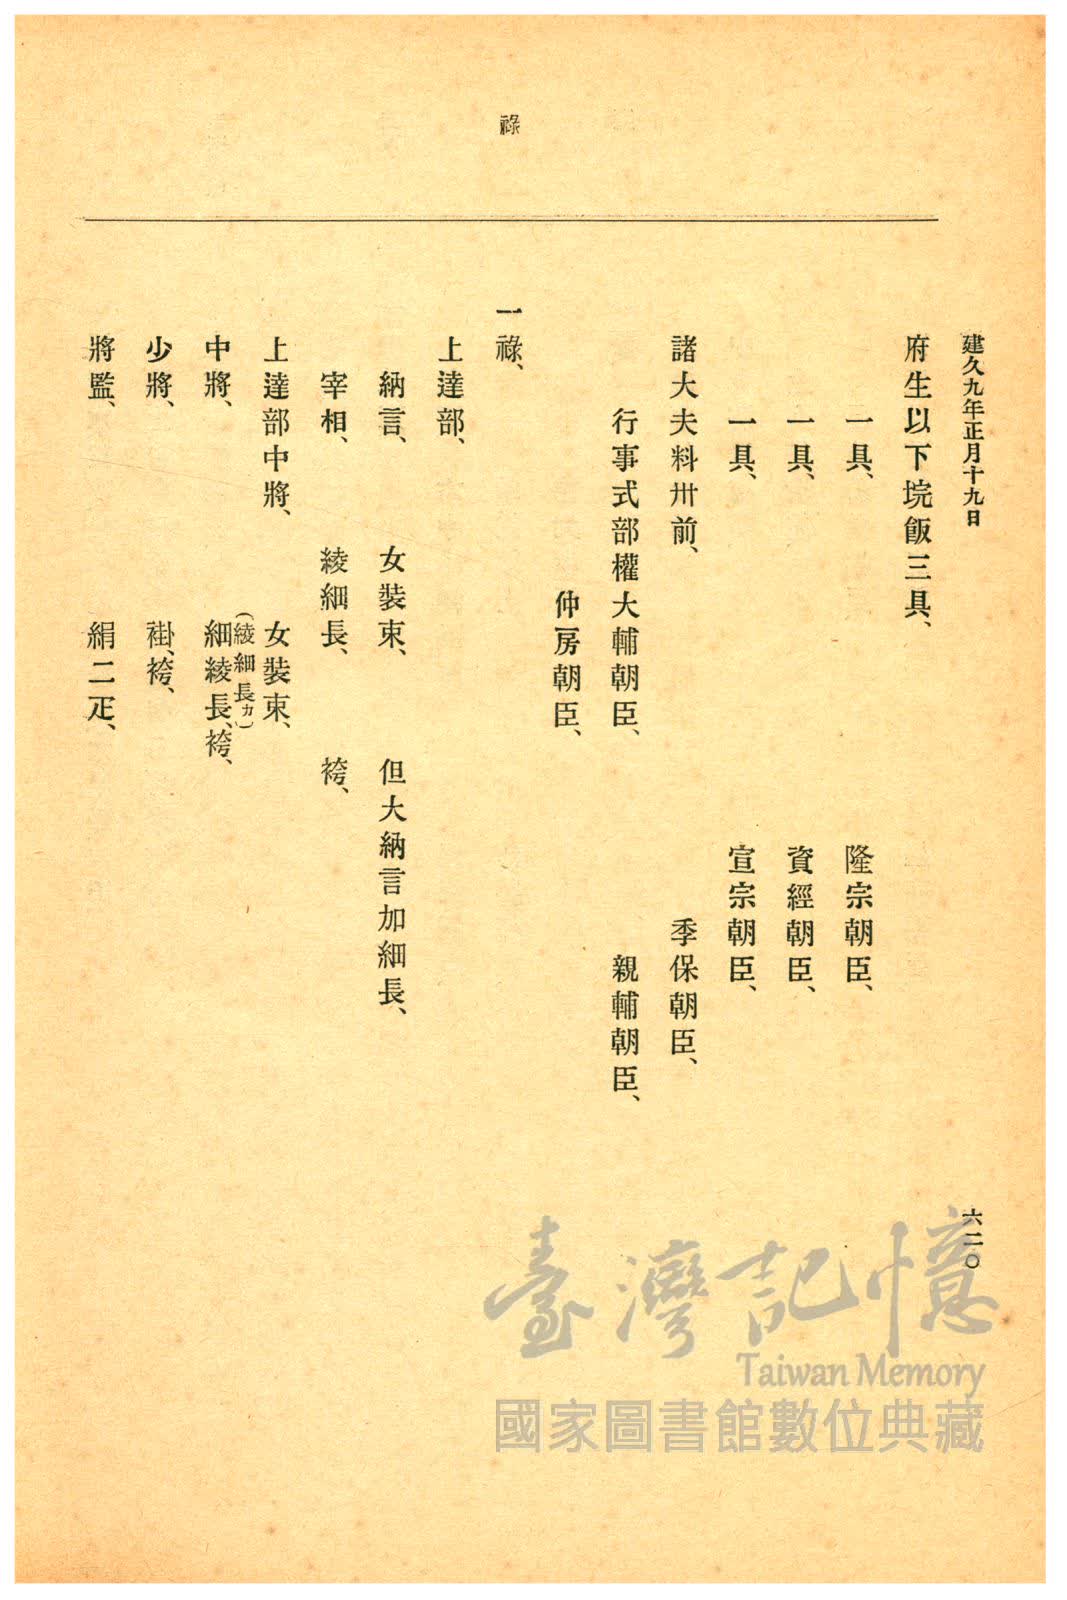 建久九年正月十九日
六二〇
祿
府生以下垸飯三具、
一具、 隆宗朝臣、
一具、 資經朝臣、
一具、 宣宗朝臣、
諸大夫料卅前、 季保朝臣、
行事式部權大輔朝臣、 親輔朝臣、
仲房朝臣、
一祿、
上達部、
納言、 女裝束、 但大納言加細長、
宰相、 綾細長、 袴、
上達部中將、 女裝束、
(綾細長カ)
中將、 細綾長、袴、
少將、 褂、袴、
將監、 絹二疋、
臺灣記憶
Taiwan Memory
國家圖書館數位典藏